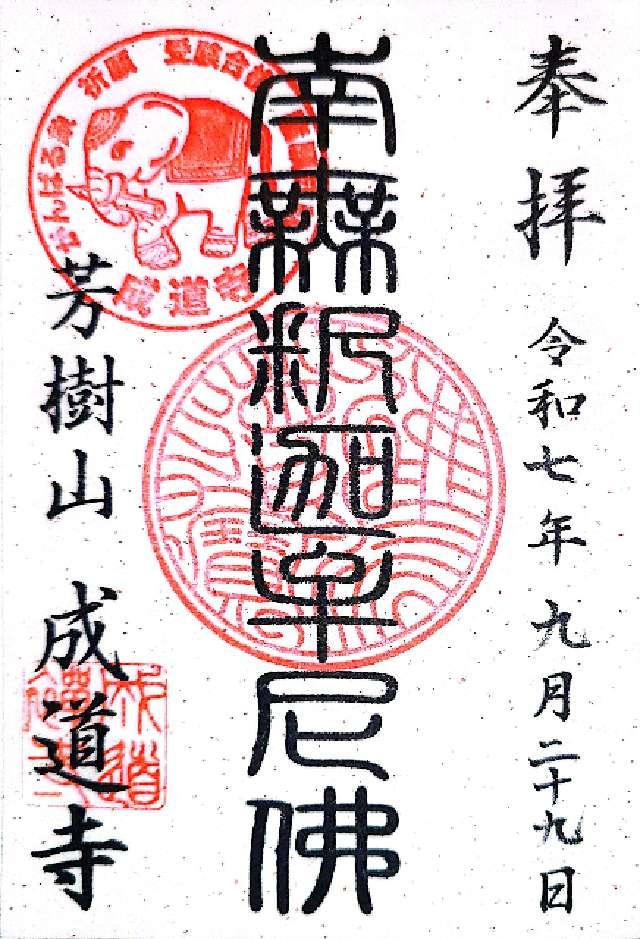 奉拝
令和七年九月二十九日
南無釈迦牟尼佛
芳樹山 成道寺
がんばる象 祈願 受験合格
成道寺